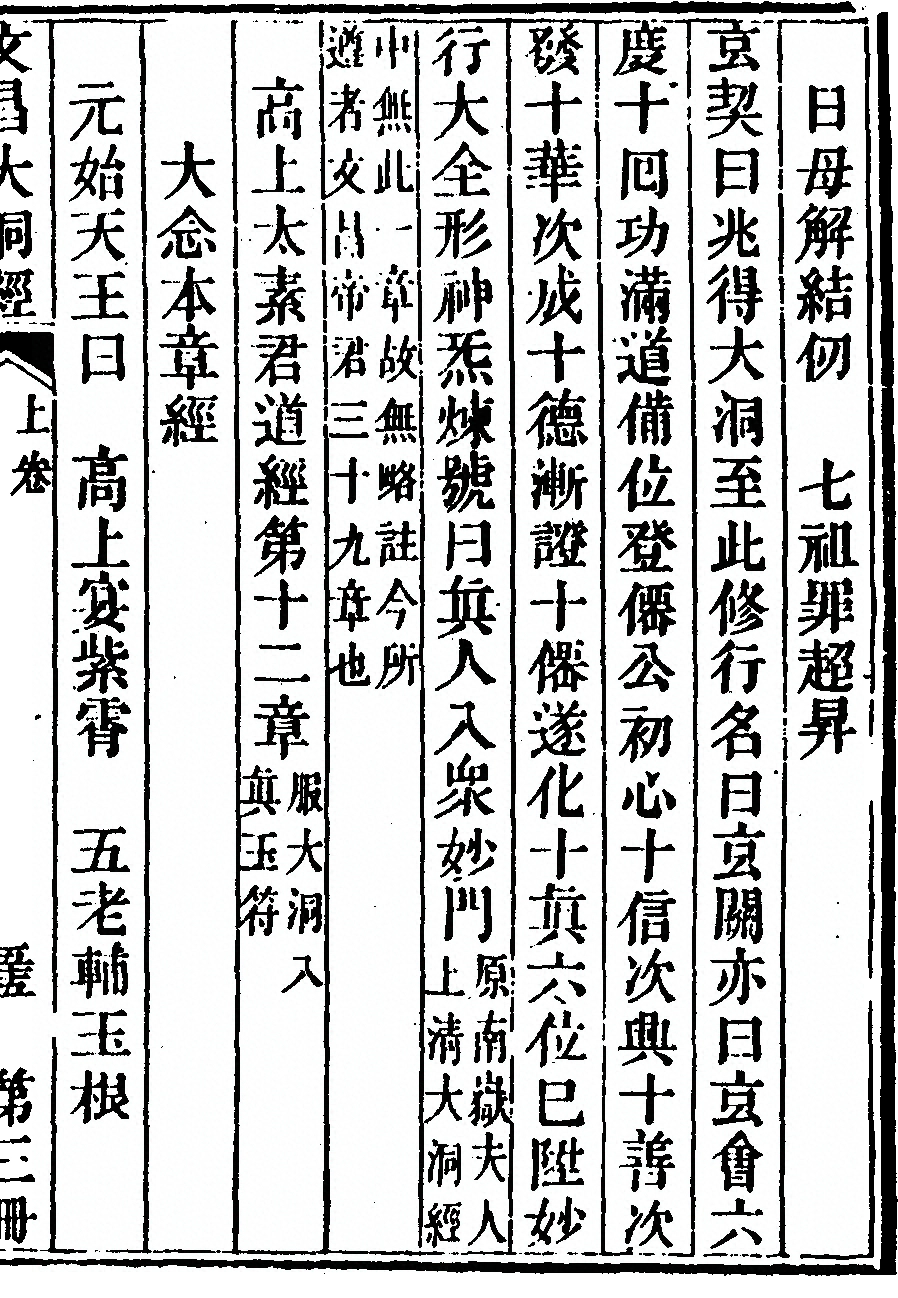 日母解結仞　七祖罪超昇
玄契曰兆得大洞至此修行名曰玄關亦曰玄會六
慶十囘功滿道備位登僊公初心十信次興十善次
發十華次成十德漸證十僊遂化十眞六位已陞妙
行大全形神炁煉號曰眞人入衆妙門原南嶽夫人上清大洞經
中無此一章故無略註今所遵者文昌帝君三十九章也
高上太素君道經第十二章服大洞入眞玉符
大念本章經
元始天王曰　高上宴紫霄　五老輔玉根
文昌大洞經　上卷　第三冊